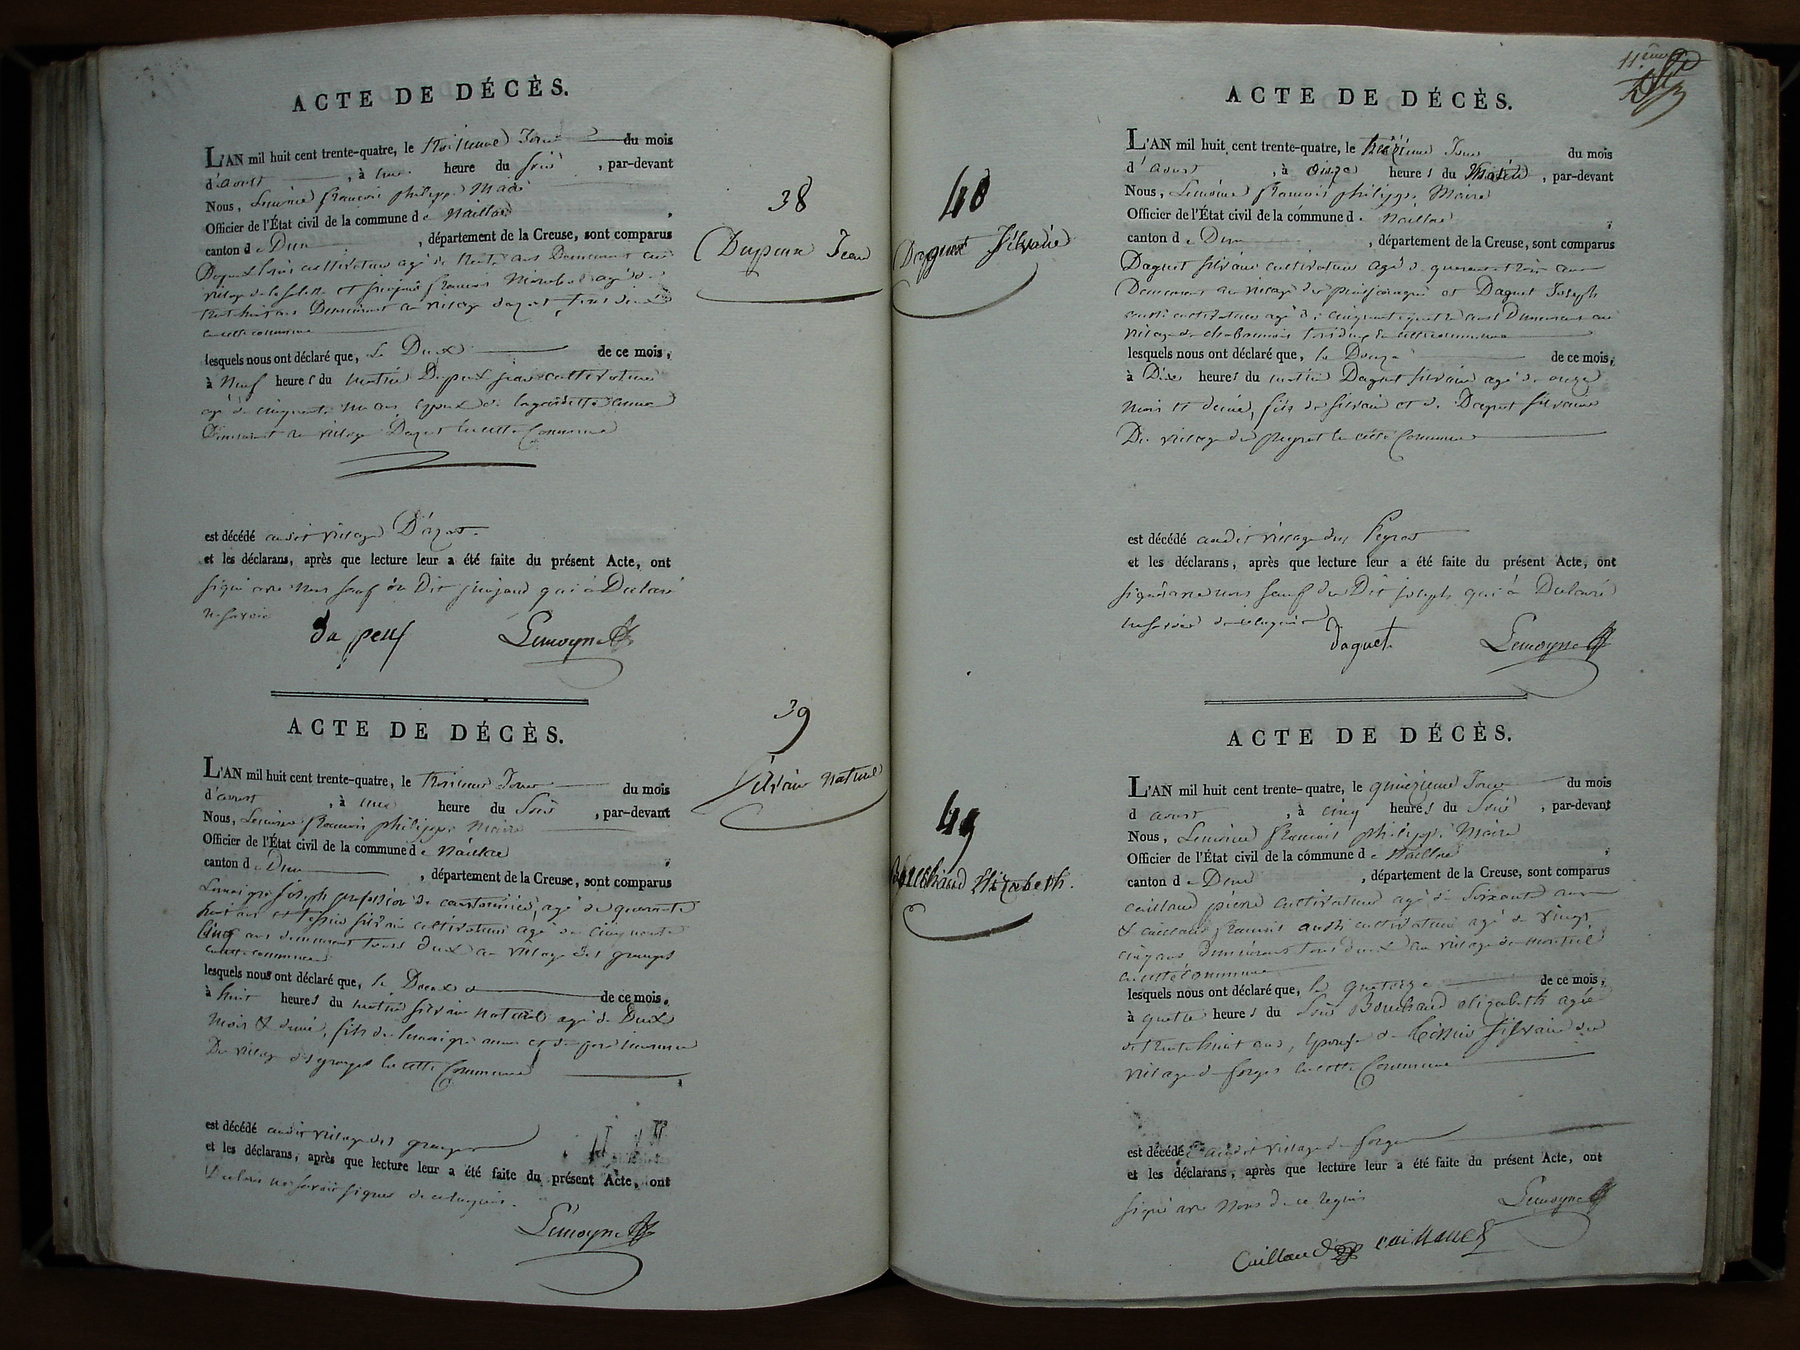 ACTE DE DÉCÈS.
L'AN mil huit cent trente-quatre, le troisieme Jour du mois
d'aoust, à une heure du soir, par-devant
Nous, Lemoine françois philippe Maire
Officier de l'État civil de la commune de Naillac
canton de Dun, département de la Creuse, sont comparus
Dupeux cultivateur agé de trente ans Demeurant au
village de la et françois agé de
trente huit ans Demeurant au village dazat tous deux
en cette commune
lesquels nous ont déclaré que, le Deux de ce mois,
à Neuf heures du matin Dupeux jean cultivateur
agé de cinquante un ans, epoux de
Demeurant au village Dazat en cette Commune
est décédé audit village D'azat
et les déclarans, après que lecture leur a été faite du présent Acte, ont
signé avec Nous sauf du Dit qui à Declaré
ne savoir
dupeux Lemoyne
38
Dupeux Jean
ACTE DE DÉCÈS.
L'AN mil huit cent trente-quatre, le troisieme Jour du mois
d'aoust, à une heure du Soir, par-devant
Nous, Lemoine françois philippe Maire
Officier de l'État civil de la commune de Naillac
canton de Dun, département de la Creuse, sont comparus
joseph profession de cantonnier, agé de quarante
huit ans et silvain cultivateur agé de cinquante
cinq ans demeurant tous deux au village des granges
en cette commune
lesquels nous ont déclaré que, le Deux de ce mois,
à huit heures du matin silvain naturel agé de Deux
mois & demi, fils de et de pere inconnu
Du village des granges en cette Commune
est décédé audit village des granges
et les déclarans, après que lecture leur a été faite du présent Acte, ont
Declaré ne savoir signer de ce requis.
Lemoyne
39
Silvain naturel
11eme
ACTE DE DÉCÈS.
L'AN mil huit cent trente-quatre, le treizieme Jour du mois
d'aoust, à onze heures du Matin, par-devant
Nous, Lemoine françois philippe Maire
Officier de l'État civil de la commune de Naillac
canton de Dun, département de la Creuse, sont comparus
Daguet silvain cultivateur agé de quarante trois ans
Demeurant au village du et Daguet Joseph
aussi cultivateur agé de cinquante quatre ans Demeurant au
village de tous deux en cette commune
lesquels nous ont déclaré que, le Douze de ce mois,
à Dix heures du matin Daguet silvain agé de onze
mois et demi, fils de silvain et de Daguet silvaine
Du village du peyrat en cette Commune
est décédé audit village du Peyrat
et les déclarans, après que lecture leur a été faite du présent Acte, ont
signé avec nous sauf du Dit joseph qui à Declaré
ne savoir de ce requis
daguet Lemoyne
40
Daguet Silvain
ACTE DE DÉCÈS.
L'AN mil huit cent trente-quatre, le quinzieme Jour du mois
d'aoust, à cinq heures du Soir, par-devant
Nous, Lemoine françois philippe Maire
Officier de l'État civil de la commune de Naillac
canton de Dun, département de la Creuse, sont comparus
caillaud pierre cultivateur agé de soixante ans
& caillaud françois aussi cultivateur agé de vingt
cinq ans Demeurant tous deux au village de
en cette commune
lesquels nous ont déclaré que, le quatorze de ce mois,
à quatre heures du Soir Bouchaud elizabeth agée
de trente huit ans, Epouse de Silvain du
village de forges en cette Commune
est décédée audit village de forges
et les déclarans, après que lecture leur a été faite du présent Acte, ont
signé avec Nous de ce requis
Lemoyne
Caillaud caillaud
Bouchaud Elizabeth.